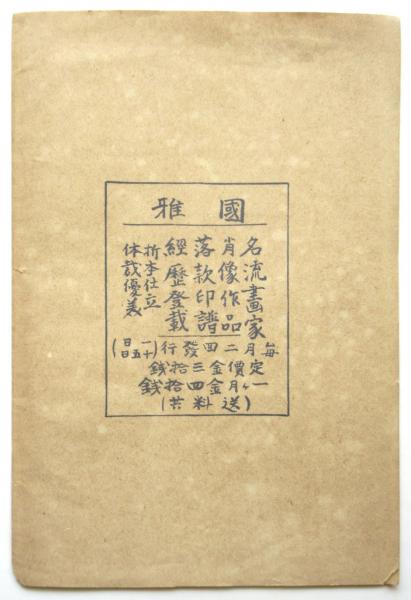 國雅
名流畫家
肖像作品
落款印譜
經歷登載
折本仕立
体裁優美
每月二回發行(一日十五日)
定價金三拾錢
一ヶ月金四拾錢
(送料共)